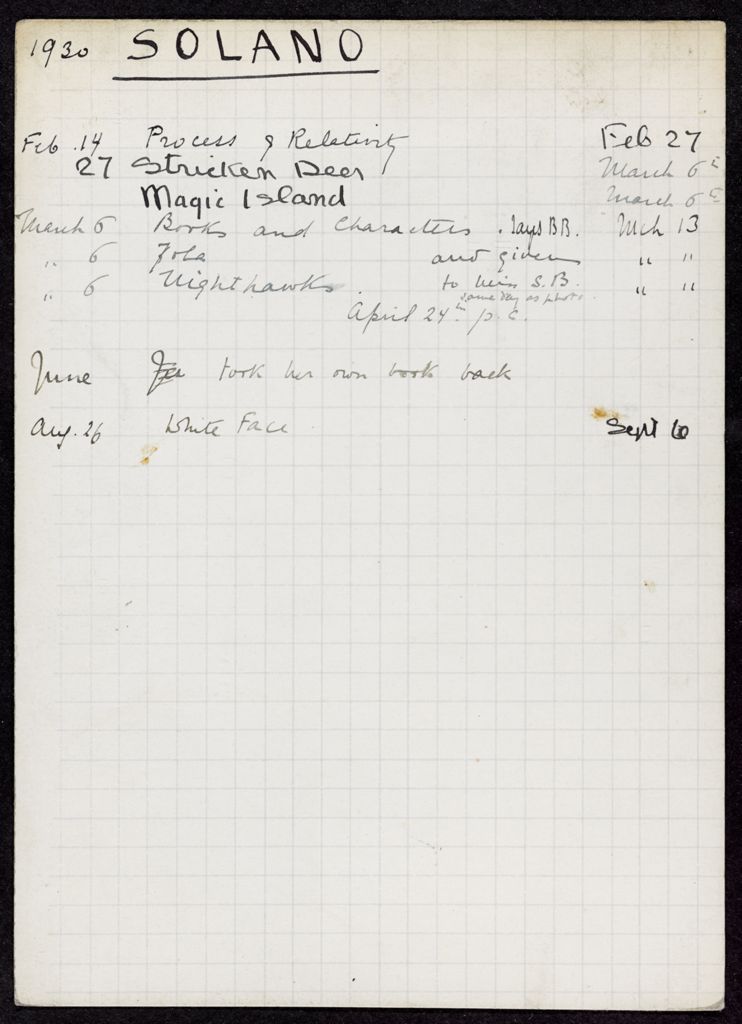 1930 SOLANO
Feb. 14 Process & Relativity Feb 27
27 Stricken Deer March 6th
Magic Island March 6th
March 6 Books and Characters. says BB. Mch 13
" 6 Zola and given " "
" 6 Nighthawks. to Miss S.B. " "
same day as photo.
April 24th p.c.
June took her own book back
Aug. 26 White Face Sept 6